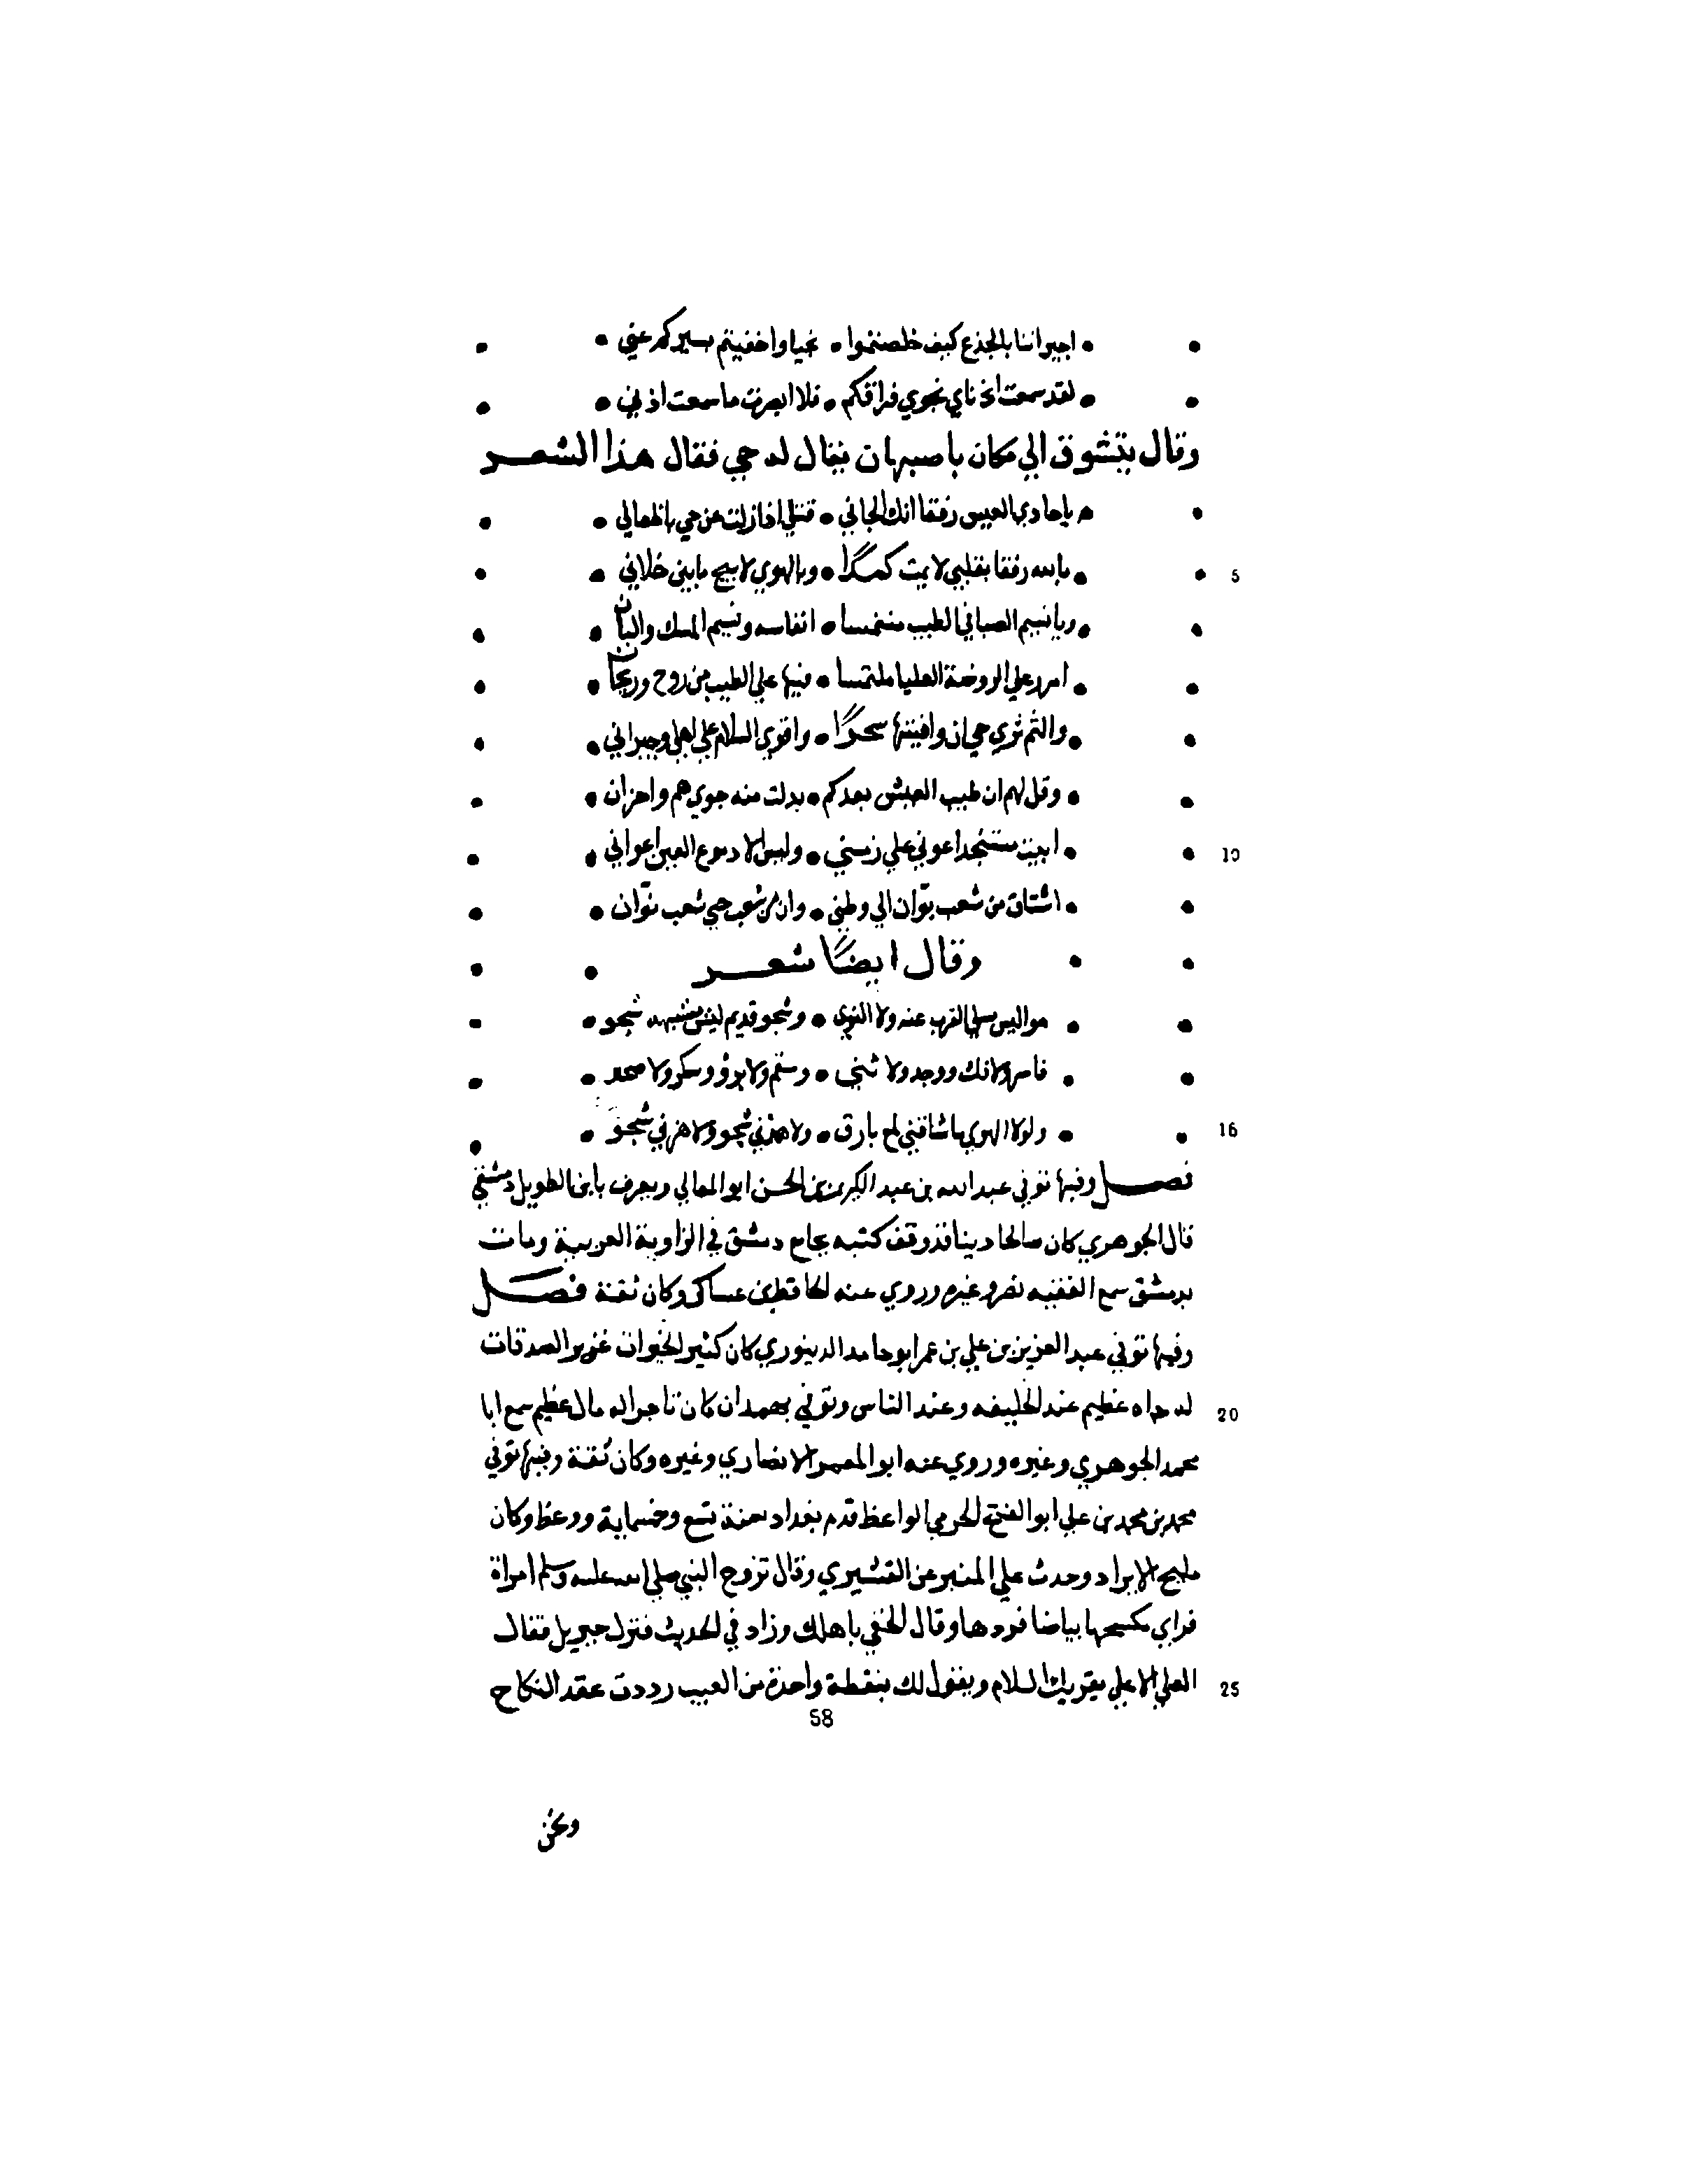 • اجيراننا بالجذع كيف خلصتموا • نجيا واخفيتم بسيركم عني •
• لقد سمعت اذناي نجوي فراقكم • فلا ابصرت ما سمعت اذني •
وقال يتشوق الي مكان باصبهان يقال له جي فقال هذا الشعر
• يا حادي العيس رفقا انك الجاني • قتلي اذا زلت عن جي باظعاني •
5 • بالله رفقا بقلبي لا يمت كمدًا • وبالهوي لا بيج يا بني خلاني •
• ويا نسيم الصبا في الطيب • انفاسه ونسيم المسك والبان •
• امرر علي الروضة العليا ملتمسا • فيها علي الطيب من روح وريحان •
• والثم ثري جي ان وافيتها سحرًا • واقري السلام علي اهلي وجيراني •
• وقل لهم ان طيب العيش بعدكم • بدلت منه جوي هم واحزان •
10 • ابيت مستنجدا عوني علي زمني • وليس الا دموع العين اعواني •
• اشتاق من شعب بوّان الي وطني • وان من شعب جي شعب بوّان •
وقال ايضًا شعر
• القرب عنه ولا النوي • وشجو قديم ليس يشبهه شجو •
• ووجد ولا • وسقم ولا برؤ وسكر ولا صحو •
16 • ولولا الهوي ما شاقني لمع بارق • ولا هزني شجو •
فصل وفيها توفي عبد الله بن عبد الكريم بن الحسن ابو المعالي ويعرف بابن الطويل دمشقي
قال الجوهري كان صالحا دينا قد وقف كتبه بجامع دمشق في الزاوية الغربية ومات
بدمشق سمع الفقيه نصر وغيره وروي عنه الحافظ بن عساكر وكان ثقة فصل
وفيها توفي عبد العزيز بن علي بن عمر ابو حامد الدينوري كان كثير الخيرات غزير الصدقات
20 له جاه عظيم عند الخليفه وعند الناس وتوفي بهمدان كان تاجرا له مال عظيم سمع ابا
محمد الجوهري وغيره وروي عنه ابو المعمر الانصاري وغيره وكان ثقة وفيها توفي
محمد بن محمد بن علي ابو الفتح الحرمي الواعظ قدم بغداد سنة تسع وخمسماية ووعظ وكان
مليح الايراد وحدث علي المنبر عن القشيري وقال تزوج النبي صلي الله عليه وسلم امراة
فراي بكسحها بياضا فردها وقال الحقي باهلك وزاد في الحديث فنزل جبريل فقال
25 العلي الاعلي يقريك السلام ويقول لك بنقطة واحدة من العيب رددت عقد النكاح
58
ونحن